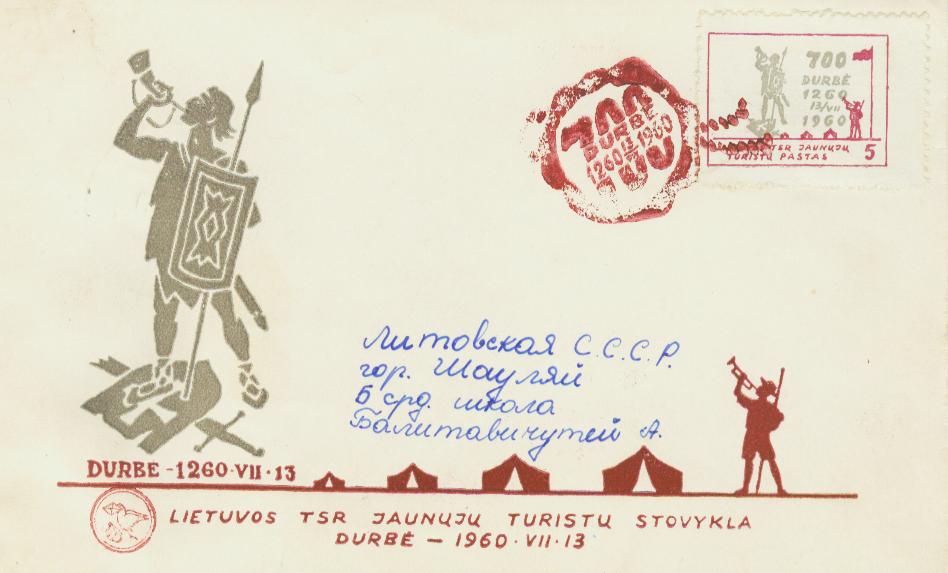 700
DURBĖ
1260 13/VII 1960
700
700
DURBĖ
1260
13/VII
1960
TSR JAUNŲJŲ
TURISTŲ PAŠTAS
5
Литовская С.С.С.Р.
гор. Шауляй
5 срд. школа
Балитавичутей А.
DURBĖ - 1260 · VII · 13
LIETUVOS TSR JAUNŲJŲ TURISTŲ STOVYKLA
DURBĖ — 1960 · VII · 13